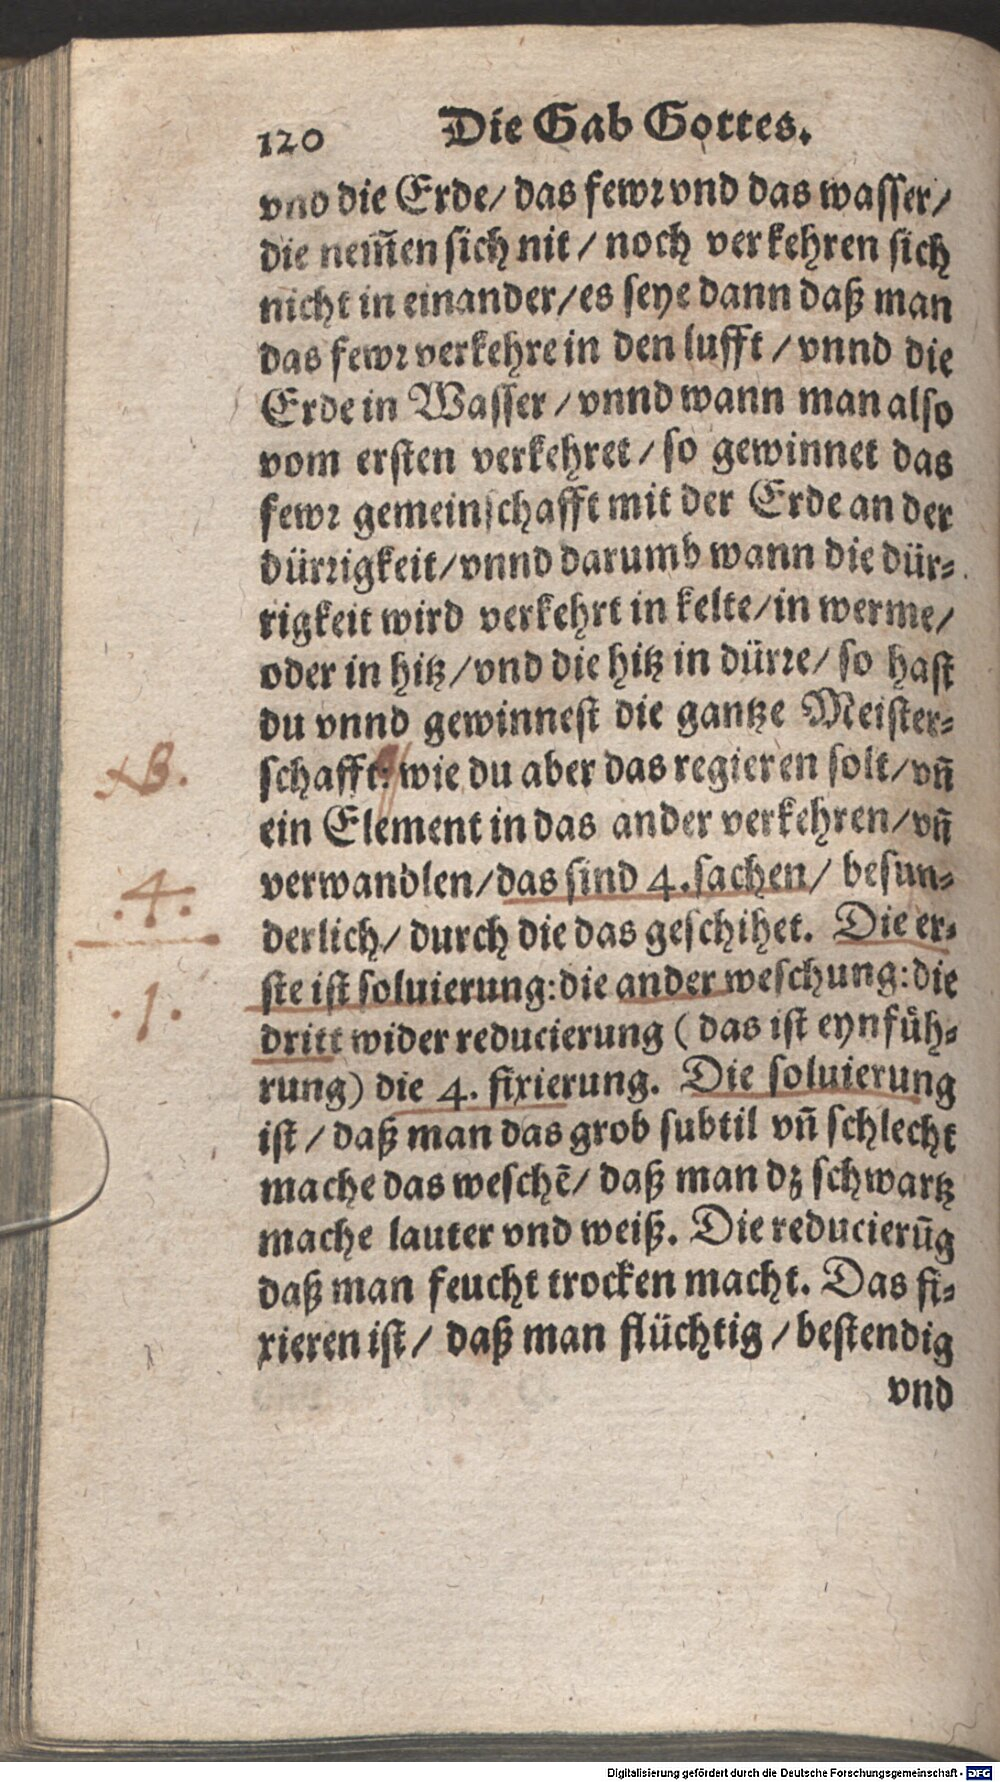 120 Die Gab Gottes.
vnd die Erde/ das fewr vnd das wasser/
die nem̃en sich nit / noch verkehren sich
nicht in einander/es seye dann daß man
das fewr verkehre in den lufft / vnnd die
Erde in Wasser / vnnd wann man also
vom ersten verkehret / so gewinnet das
fewr gemeinschafft mit der Erde an der
dürrigkeit/vnnd darumb wann die dür-
rigkeit wird verkehrt in kelte/in werme/
oder in hitz/vnd die hitz in dürre/ so hast
du vnnd gewinnest die gantze Meister-
NB.
schafft: wie du aber das regieren solt/vñ
ein Element in das ander verkehren/vñ
.4.
verwandlen/das sind 4. sachen/ besun-
derlich/ durch die das geschihet. Die er-
ste ist soluierung: die ander weschung: die
.1.
dritt wider reducierung ( das ist eynfüh-
rung) die 4. fixierung. Die soluierung
ist / daß man das grob subtil vñ schlecht
mache das weschẽ/ daß man dz schwartz
mache lauter vnd weiß. Die reducierũg
daß man feucht trocken macht. Das fi-
xieren ist / daß man flüchtig / bestendig
vnd
Digitalisierung gefördert durch die Deutsche Forschungsgemeinschaft - DFG